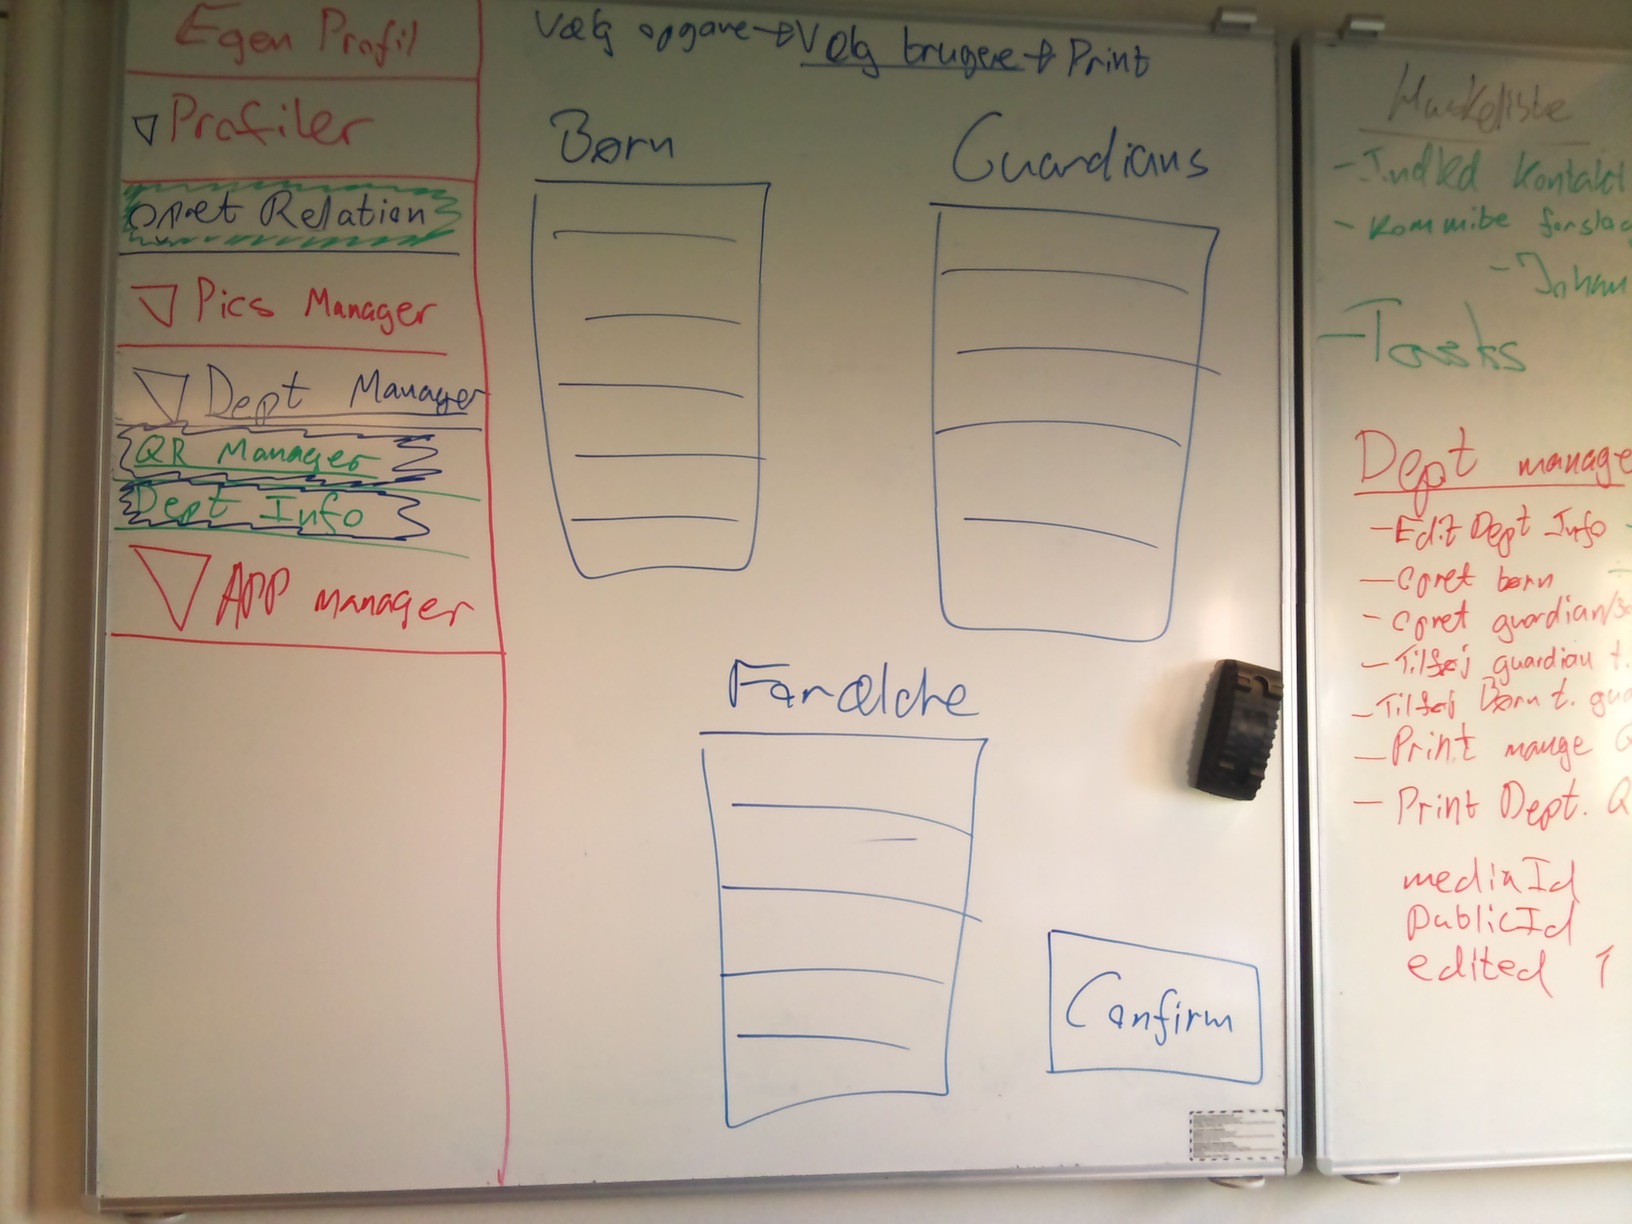 Egen Profil
Profiler
Opret Relation
Pics Manager
Dept Manager
QR Manager
Dept Info
APP manager
Vælg opgave → Vælg brugere → Print
Børn
Guardians
Forældre
Confirm
Huskeliste
- Indkd Kontakt
- Kommibe forslag
- Johan
- Tasks
Dept manage
- Edit Dept Info
- Opret børn
- Opret guardian/
- Tilføj guardian t.
- Tilføj Børn t. gua
- Print mange Q
- Print Dept. Q
mediaId
publicId
edited